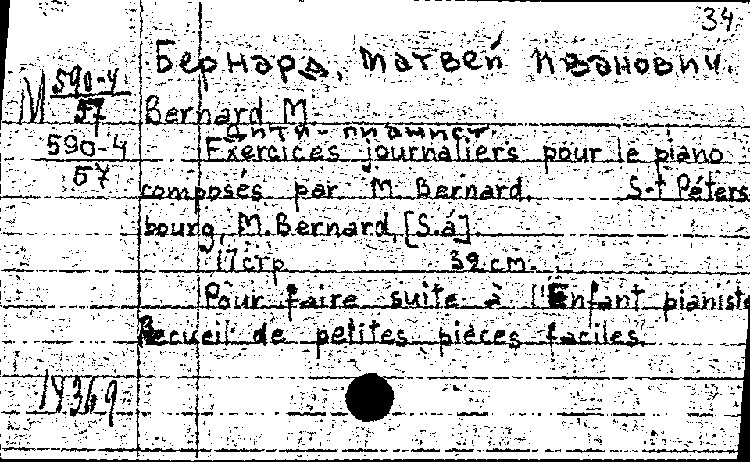 34
Бернард, Матвей Иванович.
М 590-4
57
Bernard M.
Дитя-пианист.
590-4
57
Exercices journaliers pour le piano
composés par M. Bernard. S-t Péters
bourg, M. Bernard, [S.a].
17 стр 32 cm.
Pour faire suite à l'Enfant pianiste
Recueil de petites pièces faciles.
14369